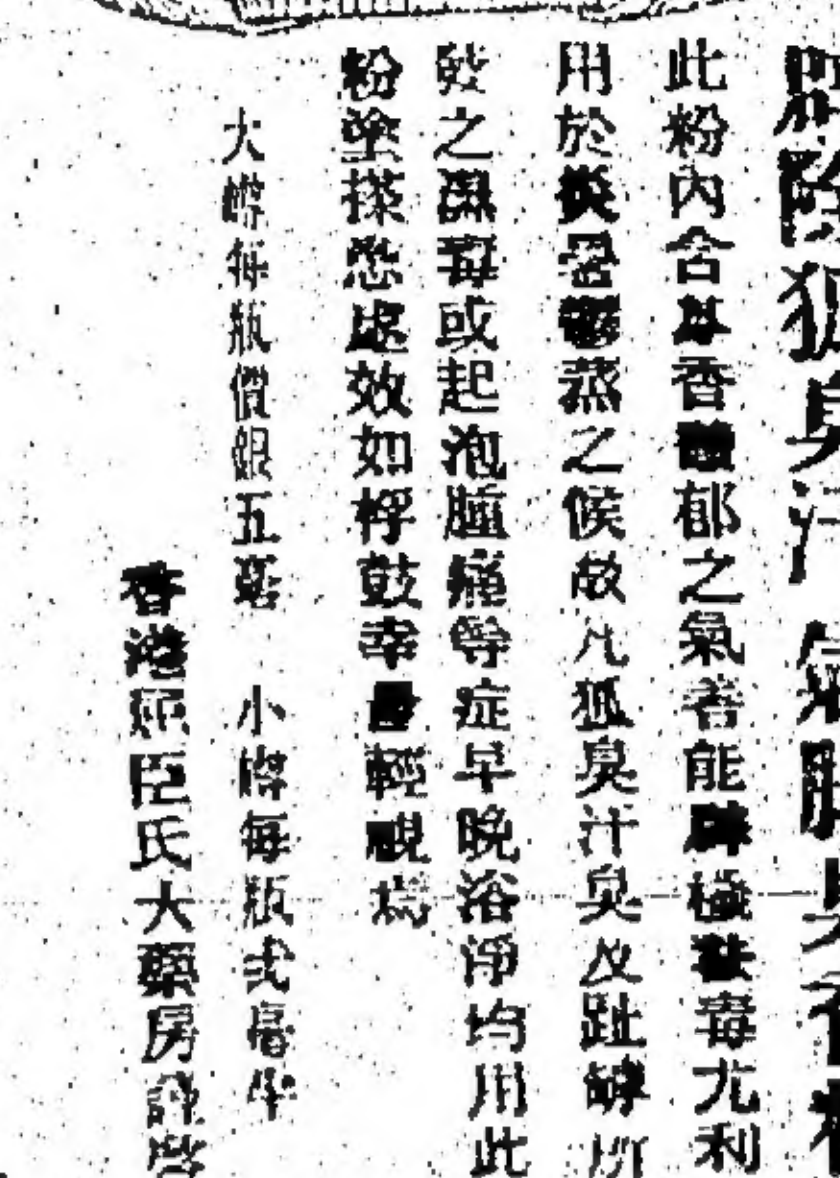 除狐臭汗氣
此粉內含異香馥郁之氣者能辟穢袪毒尤利
用於炎暑鬱蒸之候故凡狐臭汗臭及趾罅所
發之濕毒或起泡腫痛等症早晚浴淨均用此
粉塗搽患處效如桴鼓幸毋輕視焉
大罇每瓶價銀五毫 小罇每瓶式毫半
香港屈臣氏大藥房謹啓